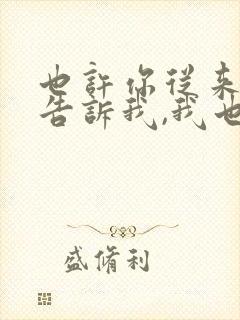 也許你從来
告訴我,我也
盛脩利